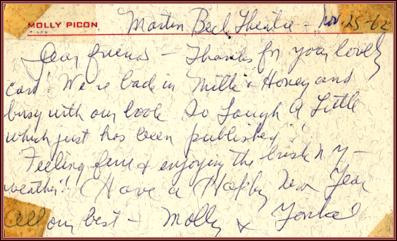 MOLLY PICON
Martin Beck Theatre - Nov. 25-62
Dear friend - Thanks for your lovely
card! We're back in Milk & Honey and
busy with our book So Laugh A Little
which just has been published!
Feeling fine & enjoying the brisk N Y -
weather! Have a Happy New Year
All our best - Molly & Yonkel